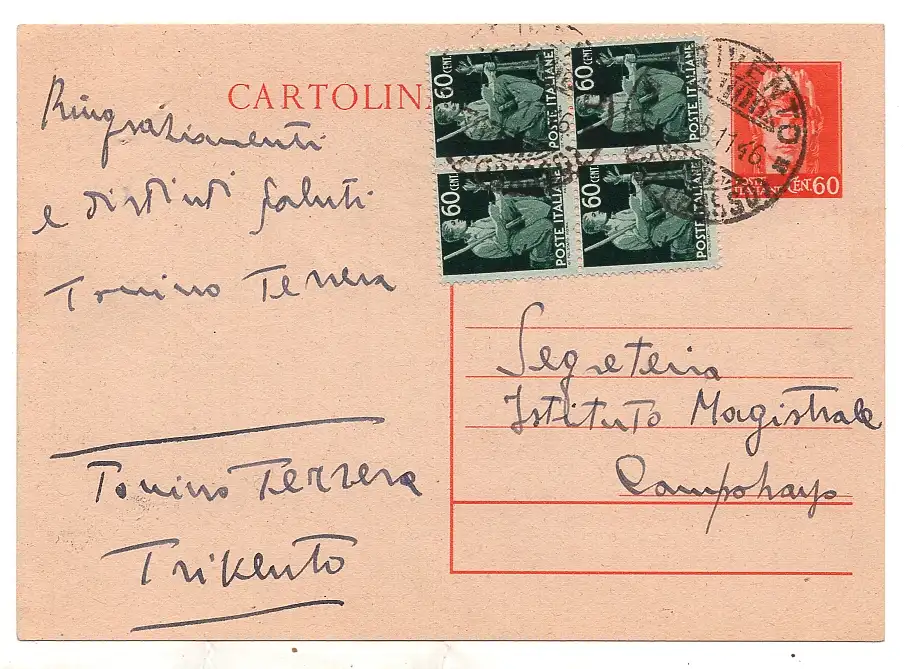 CARTOLIN
Ringraziamenti
e distinti saluti
Tonino Terrera
Tonino Terrera
Trivento
60 CENT.
POSTE ITALIANE
60 CENT.
POSTE ITALIANE
60 CENT.
POSTE ITALIANE
60 CENT.
POSTE ITALIANE
RIVENTO
11.46
CEN. 60
Segreteria
Istituto Magistrale
Campobasso